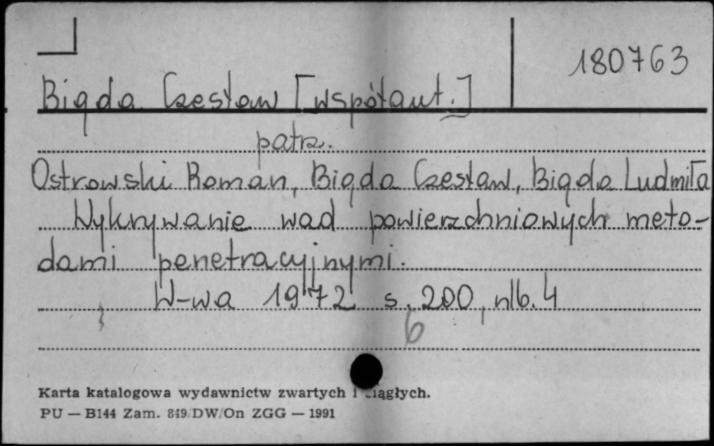 180763
Bigda Czesław [współaut.]
patrz.
Ostrowski Roman, Bigda Czesław, Bigda Ludmiła
Wykrywanie wad powierzchniowych meto-
dami penetracyjnymi.
W-wa 1972 s. 200, nlb. 4
6
Karta katalogowa wydawnictw zwartych i ciągłych.
PU — B144 Zam. 849/DW/On ZGG — 1991